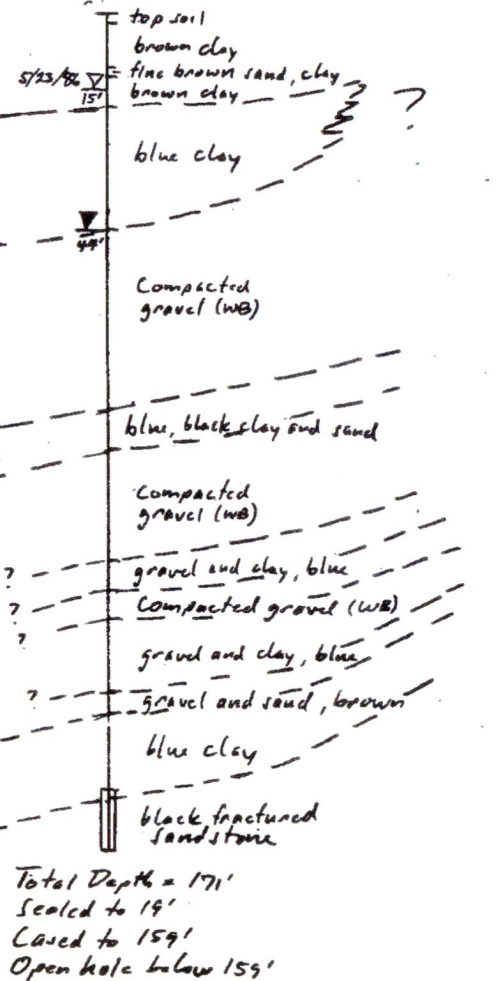 top soil
brown clay
fine brown sand, clay
5/23/86
15'
brown clay
?
blue clay
44'
Compacted
gravel (WB)
blue, black clay and sand
Compacted
gravel (WB)
?
gravel and clay, blue
?
Compacted gravel (WB)
?
gravel and clay, blue
?
gravel and sand, brown
blue clay
black fractured
sandstone
Total Depth = 171'
Sealed to 19'
Cased to 159'
Open hole below 159'